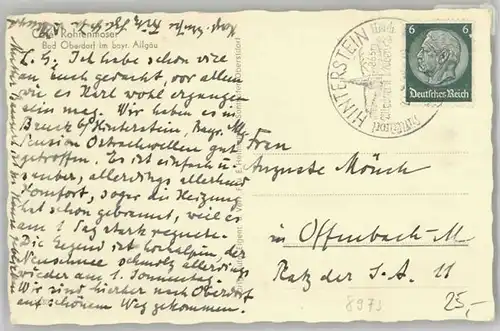 Rohrenmoser
Bad Oberdorf im bayr. Allgäu
L. G. Ich habe schon viel
an Euch gedacht, vor allem
wie es Karl wohl ergangen
sein mag. Wir haben es in
Bruck b/Hinterstein, Bayr.
Pension Ostrachwellen gut
getroffen. Es ist einfach u
sauber, allerdings allerhand
Komfort, sogar die Heizung
hat schon gebrannt, weil es
am 1 Tag stark regnete.
Die Gegend ist hochalpin, der
Neuschnee schmolz allerdings
wieder am 1. Sonnentag.
Wir sind hierher nach Oberdorf
auf schönem Weg gekommen.
HINTERSTEIN
6 6
Deutsches Reich
Frau
Auguste Mönch
in Offenbach-M
Platz der S. A. 11
8973
25,-